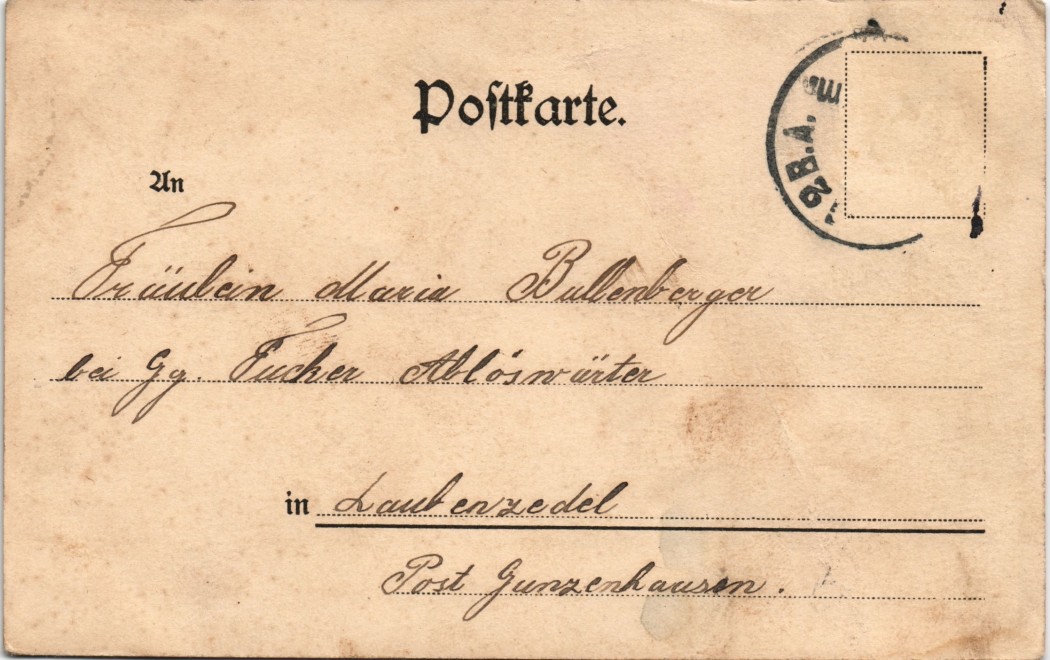 Postkarte.
An
Fräulein Maria Bullenberger
bei Gg. Tucher Ablöswärter
in Laubenzedel
Post Gunzenhausen.
12 B.A.